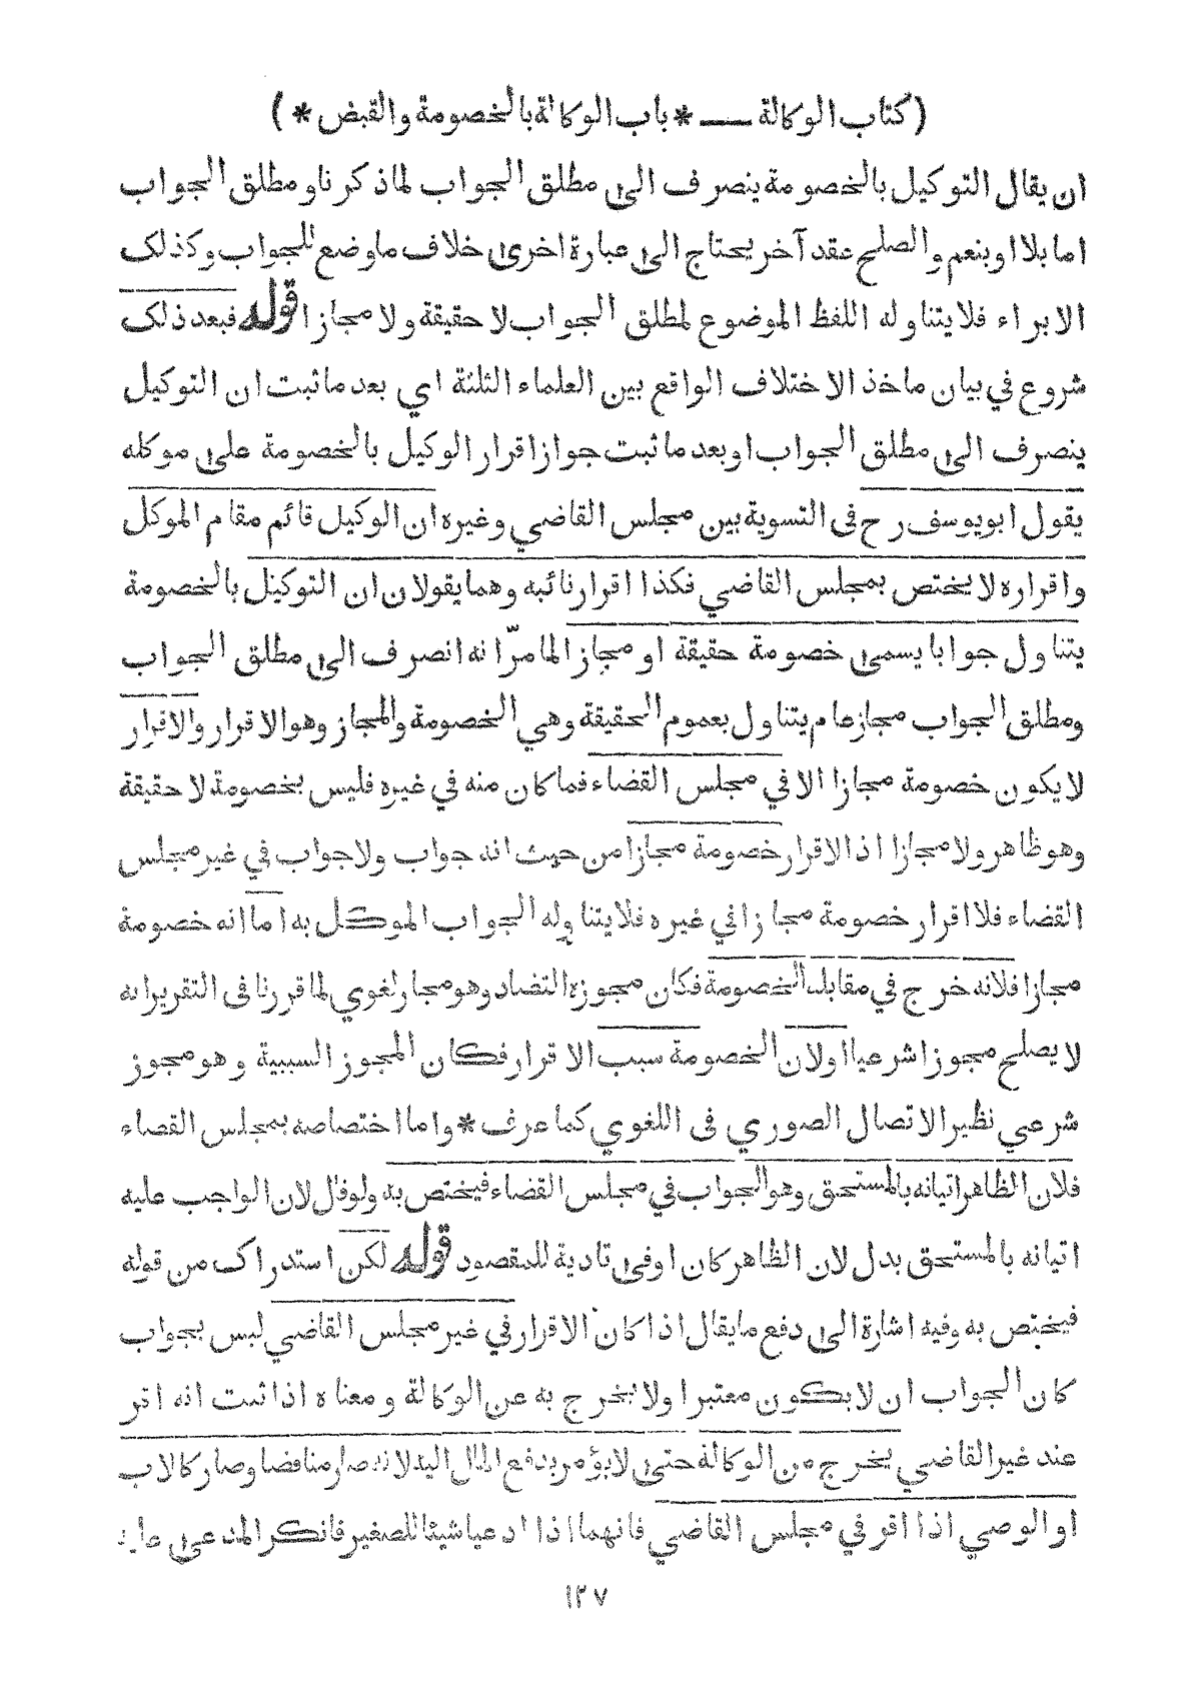 (كتاب الوكالة — * باب الوكالة بالخصومة والقبض * )
ان يقال التوكيل بالخصومة ينصرف الى مطلق الجواب لماذكرنا ومطلق الجواب
اما بلا اوبنعم والصلح عقد آخر يحتاج الى عبارة اخرى خلاف ماوضع للجواب وكذلك
الابراء فلا يتناوله اللفظ الموضوع لمطلق الجواب لا حقيقة ولا مجازا قوله فبعد ذلك
شروع في بيان ماخذ الاختلاف الواقع بين العلماء الثلثة اي بعد ماثبت ان التوكيل
ينصرف الى مطلق الجواب او بعد ما ثبت جواز اقرار الوكيل بالخصومة على موكله
يقول ابويوسف رح فى التسوية بين مجلس القاضي وغيره ان الوكيل قائم مقام الموكل
واقراره لا يختص بمجلس القاضي فكذا اقرار نائبه وهما يقولان ان التوكيل بالخصومة
يتناول جوابا يسمى خصومة حقيقة او مجازا لما مرّ انه انصرف الى مطلق الجواب
ومطلق الجواب مجاز عام يتناول بعموم الحقيقة وهي الخصومة والمجاز وهو الاقرار والاقرار
لا يكون خصومة مجازا الا في مجلس القضاء فما كان منه في غيره فليس بخصومة لا حقيقة
وهو ظاهر ولا مجازا اذ الاقرار خصومة مجازا من حيث انه جواب ولا جواب في غير مجلس
القضاء فلا اقرار خصومة مجازا في غيره فلا يتناوله الجواب الموكل به اما انه خصومة
مجازا فلانه خرج في مقابلة الخصومة فكان مجوزه التضاد وهو مجاز لغوي لما قررنا فى التقرير انه
لا يصلح مجوزا شرعيا اولان الخصومة سبب الاقرار فكان المجوز السببية وهو مجوز
شرعي نظير الاتصال الصوري فى اللغوي كما عرف * واما اختصاصه بمجلس القضاء
فلان الظاهر اتيانه بالمستحق وهو الجواب في مجلس القضاء فيختص به ولوقال لان الواجب عليه
اتيانه بالمستحق بدل لان الظاهر كان اوفى تادية للمقصود قوله لكن استدراك من قوله
فيختص به وفيه اشارة الى دفع مايقال اذا كان الاقرار في غير مجلس القاضي ليس بجواب
كان الجواب ان لا يكون معتبرا ولا يخرج به عن الوكالة ومعناه اذا ثبت انه اقر
عند غير القاضي يخرج من الوكالة حتى لا يؤمر بدفع المال اليه لانه صار مناقضا وصار كالاب
او الوصي اذا اقر في مجلس القاضي فانهما اذا ادعيا شيئا للصغير فانكر المدعى عليه
١٢٧